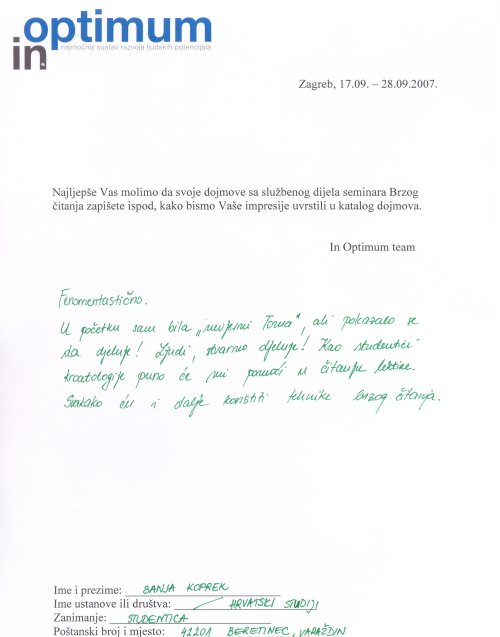 in optimum
najmoćniji sustav razvoja ljudskih potencijala
Zagreb, 17.09. – 28.09.2007.
Najljepše Vas molimo da svoje dojmove sa službenog dijela seminara Brzog
čitanja zapišete ispod, kako bismo Vaše impresije uvrstili u katalog dojmova.
In Optimum team
Feromentastično.
U početku sam bila „nevjerni Toma“, ali pokazalo se
da djeluje! Ljudi, stvarno djeluje! Kao studentici
kroatologije puno će mi pomoći u čitanju lektire.
Svakako ću i dalje koristiti tehnike brzog čitanja.
Ime i prezime: SANJA KOPREK
Ime ustanove ili društva: HRVATSKI STUDIJI
Zanimanje: STUDENTICA
Poštanski broj i mjesto: 42201 BERETINEC, VARAŽDIN